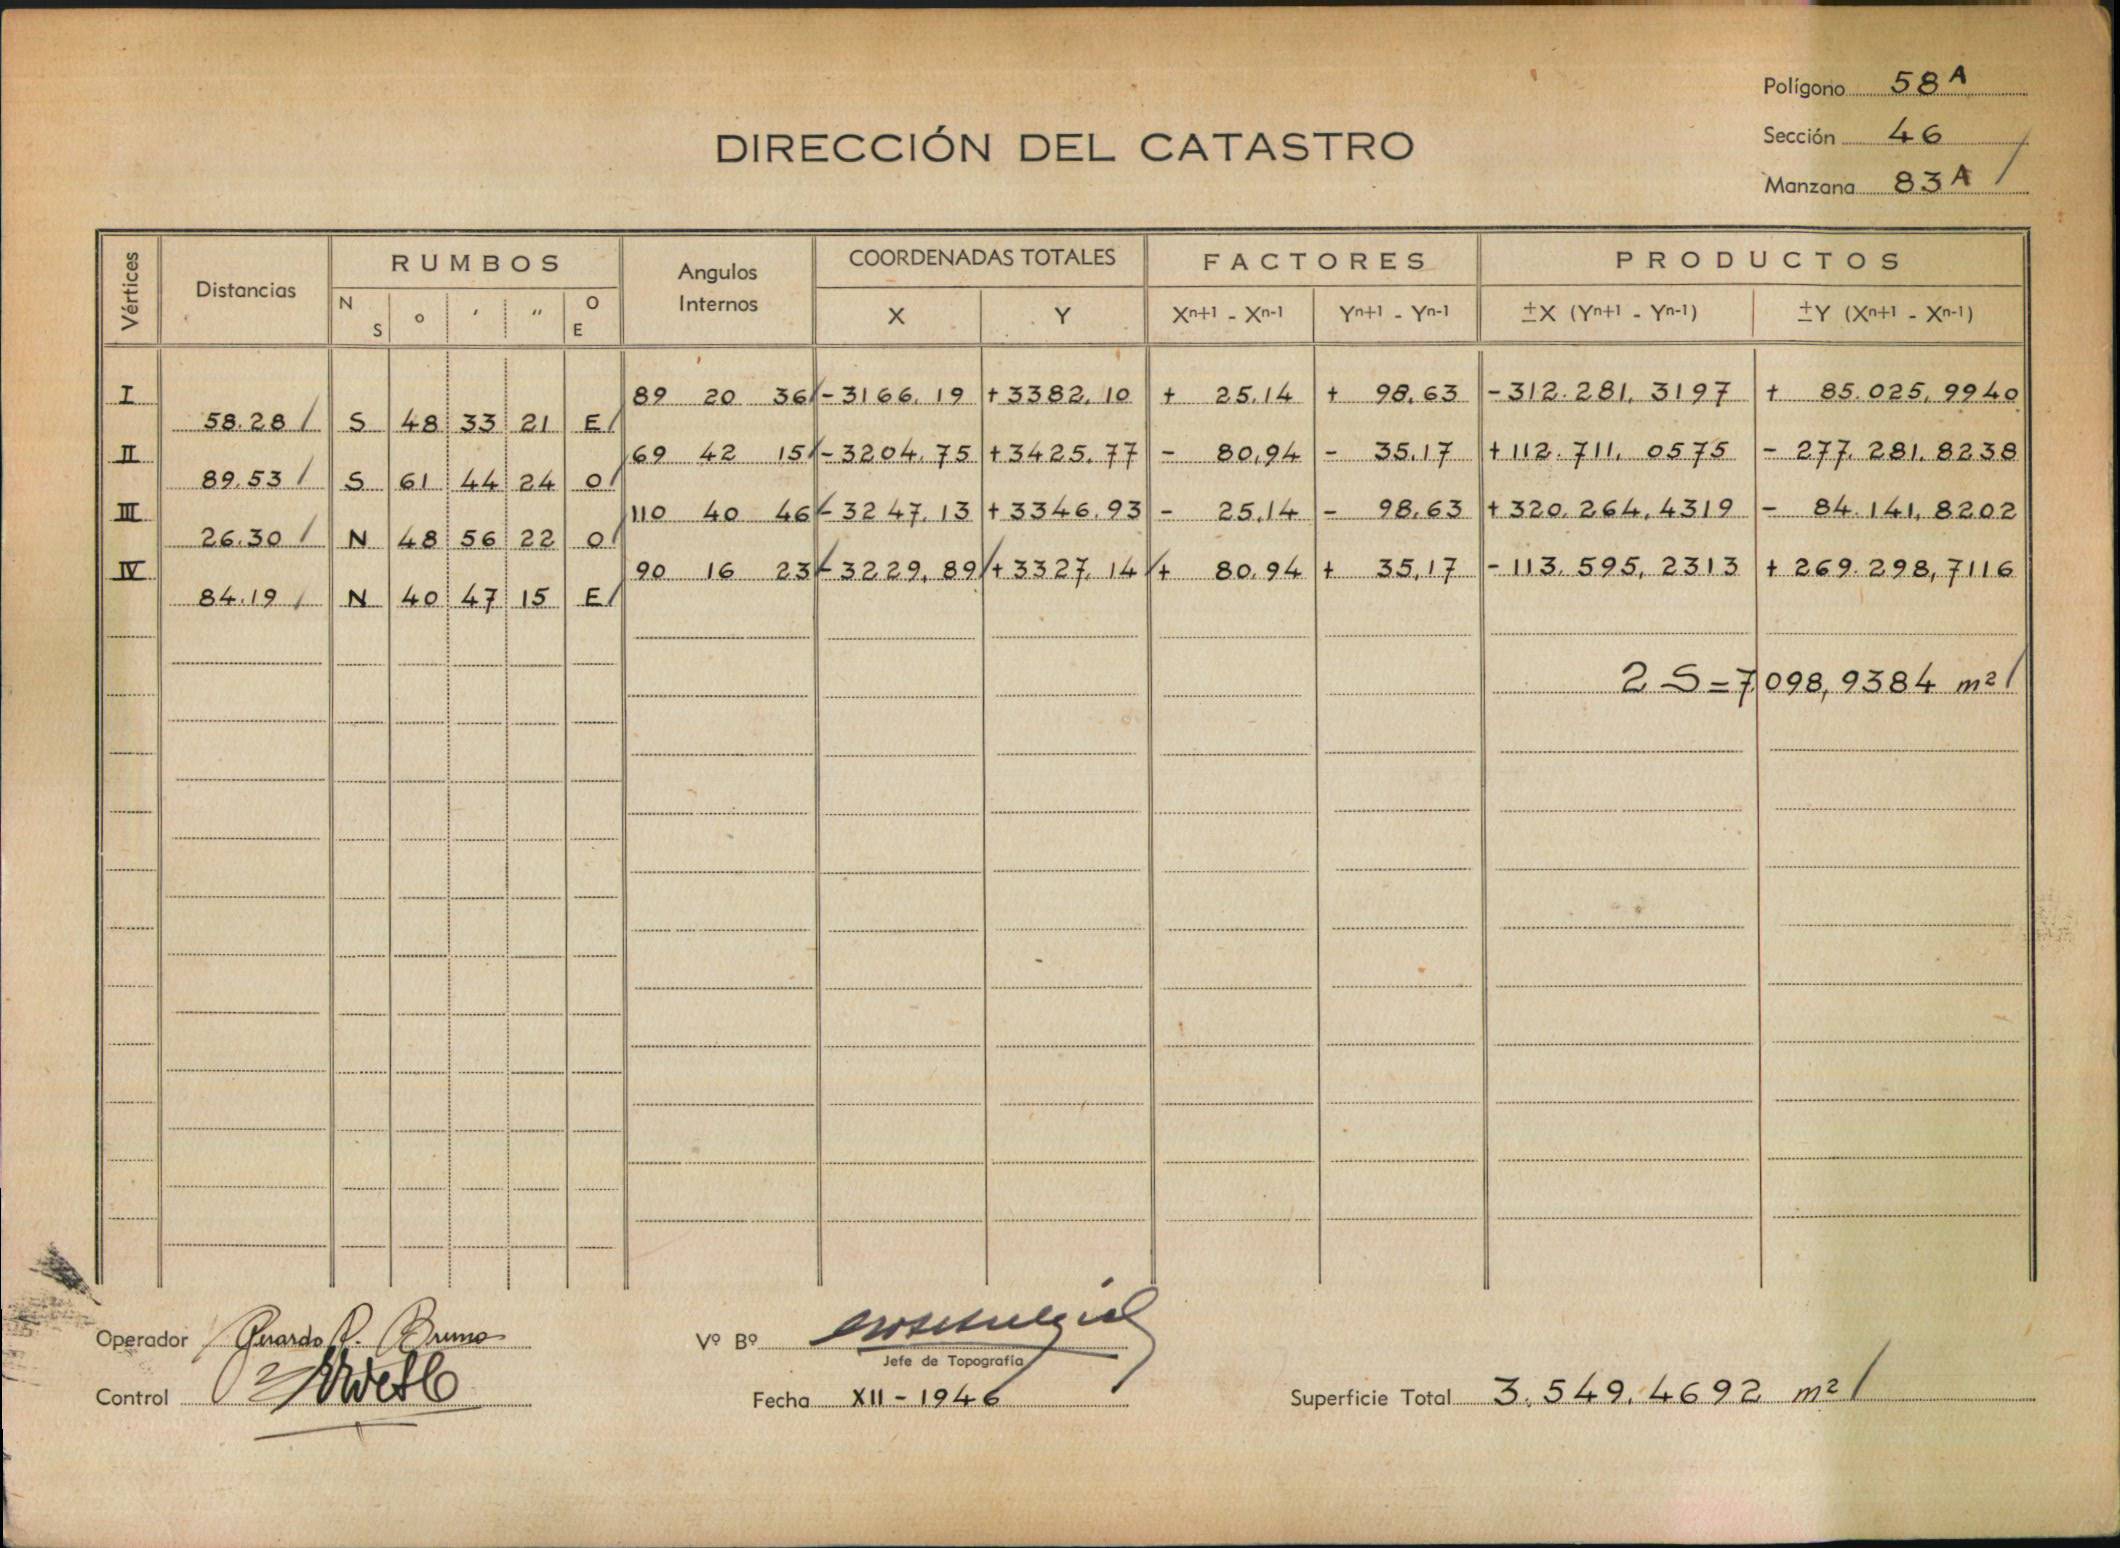 Polígono 58 A
Sección 46
Manzana 83 A
DIRECCIÓN DEL CATASTRO
Vértices Distancias RUMBOS Angulos Internos COORDENADAS TOTALES FACTORES PRODUCTOS
N S ° ' " O E X Y Xn+1 - Xn-1 Yn+1 - Yn-1 ±X (Yn+1 - Yn-1) ±Y (Xn+1 - Xn-1)
I 89 20 36 -3166,19 +3382,10 + 25,14 + 98,63 -312.281,3197 + 85.025,9940
58.28 S 48 33 21 E
II 69 42 15 -3204,75 +3425,77 - 80,94 - 35,17 +112.711,0575 - 277.281,8238
89.53 S 61 44 24 O
III 110 40 46 -3247,13 +3346,93 - 25,14 - 98,63 +320.264,4319 - 84.141,8202
26.30 N 48 56 22 O
IV 90 16 23 -3229,89 +3327,14 + 80,94 + 35,17 -113.595,2313 + 269.298,7116
84.19 N 40 47 15 E
2 S = 7.098,9384 m²
Operador R. Bruno
Control
Vº Bº
Jefe de Topografía
Fecha XII - 1946
Superficie Total 3.549,4692 m²